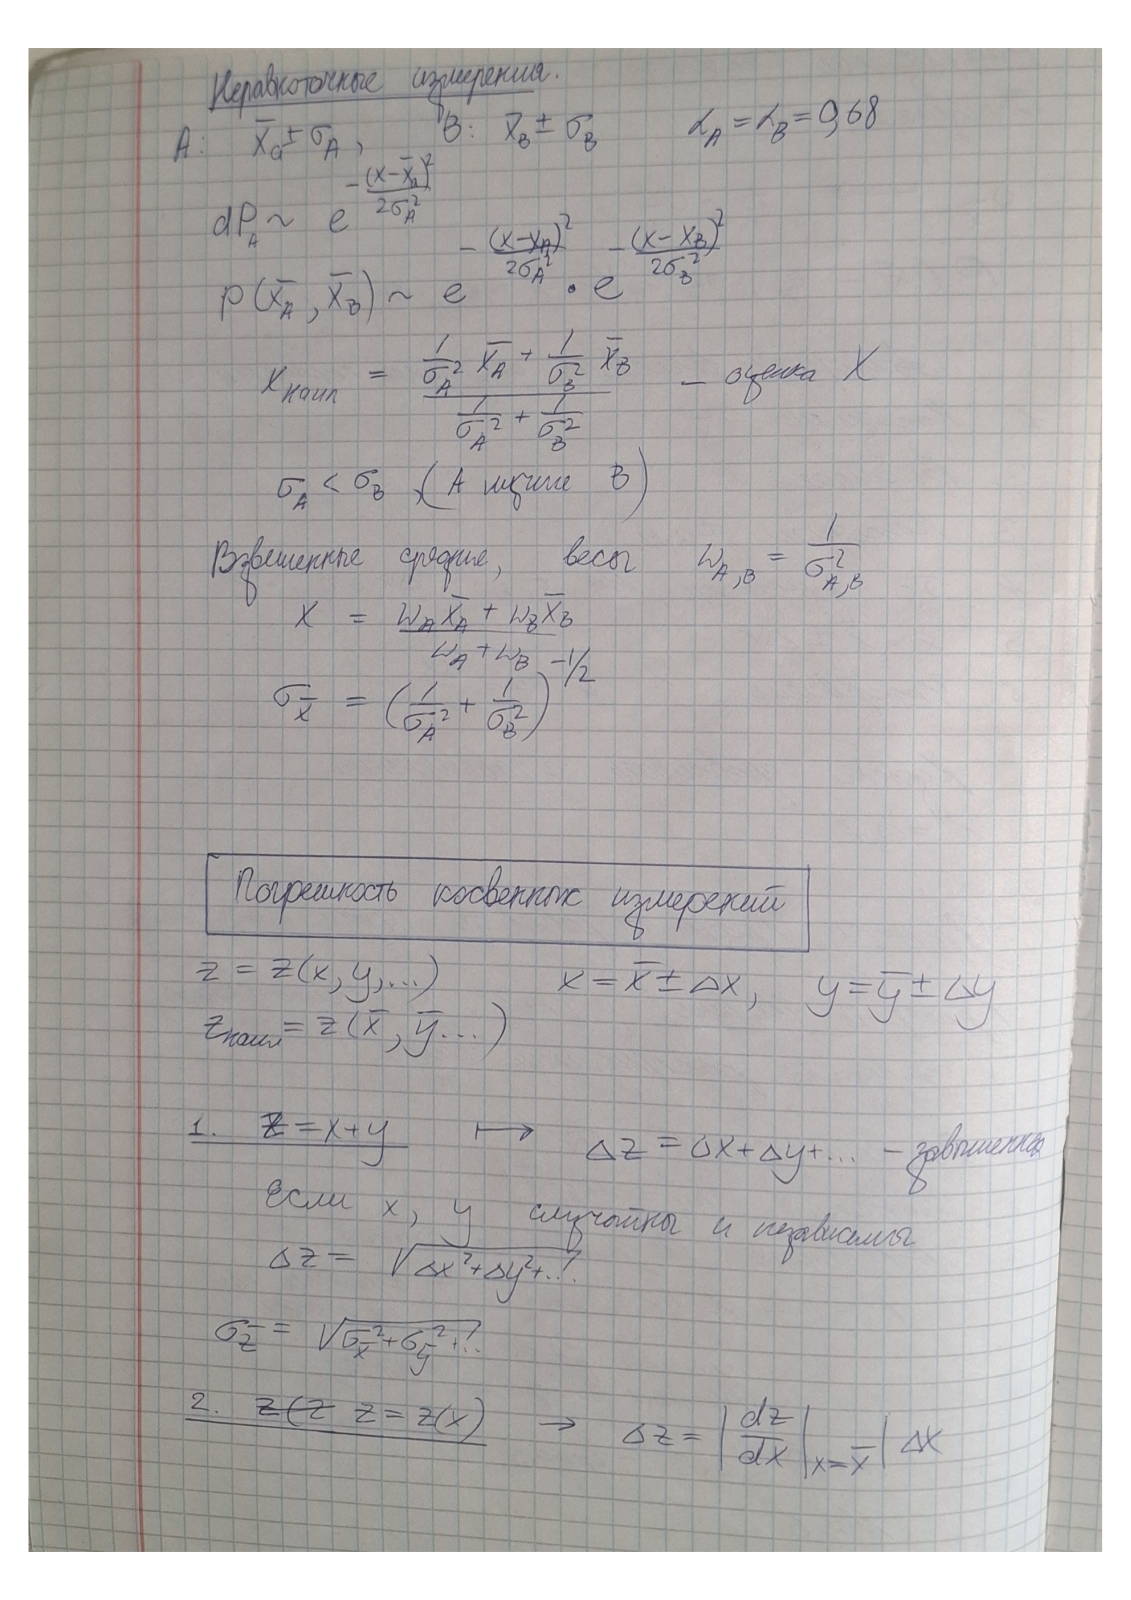 Неравноточные измерения.
A: x̄_a ± σ_A, B: x̄_B ± σ_B α_A = α_B = 0,68
dP_A ~ e^{-(x-x̄_a)²/2σ_A²}
p(x̄_A, x̄_B) ~ e^{-(x-x_A)²/2σ_A²} · e^{-(x-x_B)²/2σ_B²}
x_наил = (1/σ_A² x̄_A + 1/σ_B² x̄_B) / (1/σ_A² + 1/σ_B²) – оценка X
σ_A < σ_B (A лучше B)
Взвешенные средние, весы w_{A,B} = 1/σ²_{A,B}
X = (w_A x̄_A + w_B x̄_B) / (w_A + w_B)
σ_x̄ = (1/σ_A² + 1/σ_B²)^{-1/2}
Погрешность косвенных измерений
z = z(x, y, ...) x = x̄ ± Δx, y = ȳ ± Δy
z_наил = z(x̄, ȳ ...)
1. z = x+y ↦ Δz = Δx + Δy + ... – завышенная
Если x, y случайны и независимы
Δz = √(Δx² + Δy² + ...)
σ_z̄ = √(σ_x̄² + σ_ȳ² + ...)
2. z(z z = z(x) → Δz = |dz/dx|_{x=x̄}| Δx